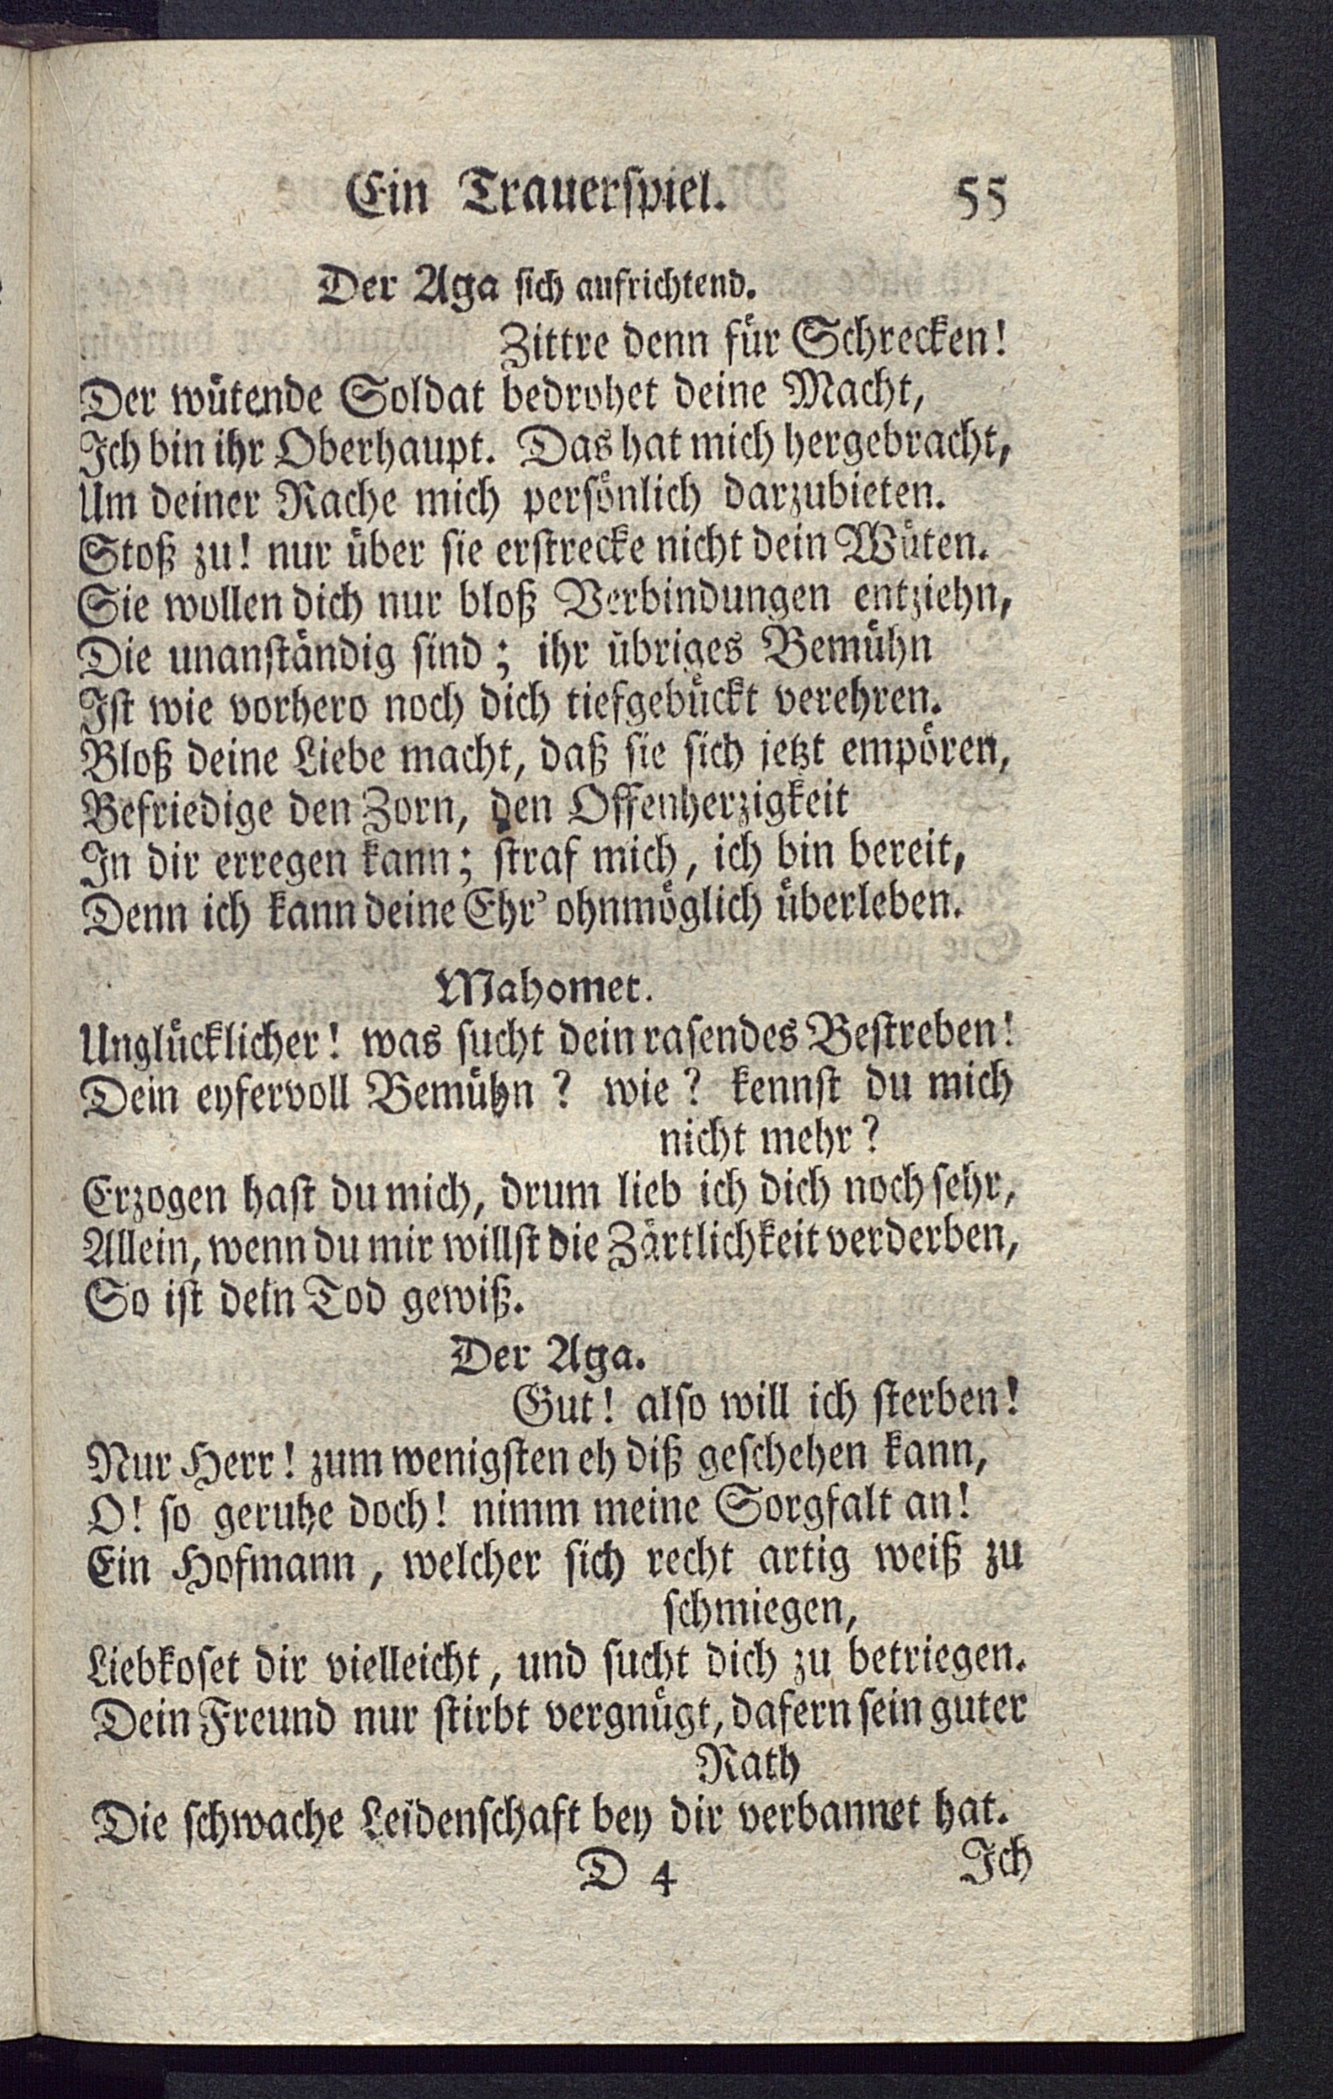 Ein Trauerspiel. 55
Der Aga sich aufrichtend.
Zittre denn für Schrecken!
Der wütende Soldat bedrohet deine Macht,
Ich bin ihr Oberhaupt. Das hat mich hergebracht,
Um deiner Rache mich persönlich darzubieten.
Stoß zu! nur über sie erstrecke nicht dein Wüten.
Sie wollen dich nur bloß Verbindungen entziehn,
Die unanständig sind; ihr übriges Bemühn
Ist wie vorhero noch dich tiefgebückt verehren.
Bloß deine Liebe macht, daß sie sich jetzt empören,
Befriedige den Zorn, den Offenherzigkeit
In dir erregen kann; straf mich, ich bin bereit,
Denn ich kann deine Ehr' ohnmöglich überleben.
Mahomet.
Unglücklicher! was sucht dein rasendes Bestreben!
Dein eyfervoll Bemühn? wie? kennst du mich
nicht mehr?
Erzogen hast du mich, drum lieb ich dich noch sehr,
Allein, wenn du mir willst die Zärtlichkeit verderben,
So ist dein Tod gewiß.
Der Aga.
Gut! also will ich sterben!
Nur Herr! zum wenigsten eh diß geschehen kann,
O! so geruhe doch! nimm meine Sorgfalt an!
Ein Hofmann, welcher sich recht artig weiß zu
schmiegen,
Liebkoset dir vielleicht, und sucht dich zu betriegen.
Dein Freund nur stirbt vergnügt, dafern sein guter
Rath
Die schwache Leidenschaft bey dir verbannet hat.
D 4 Ich